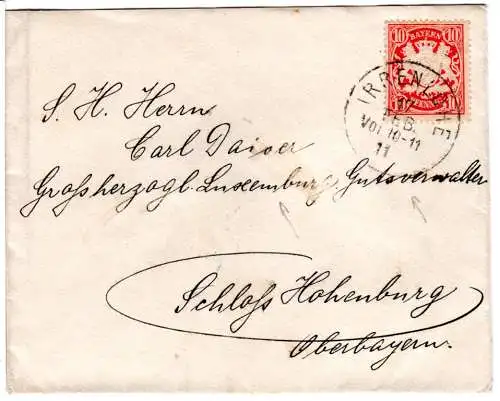 10 BAYERN 10
PFENNIG
IRRENLOHE
17
FEB.
Vor 10-11
11
S. H. Herrn
Carl Daiser
Großherzogl. Luxemburg. Gutsverwalter
Schloß Hohenburg
Oberbayern.